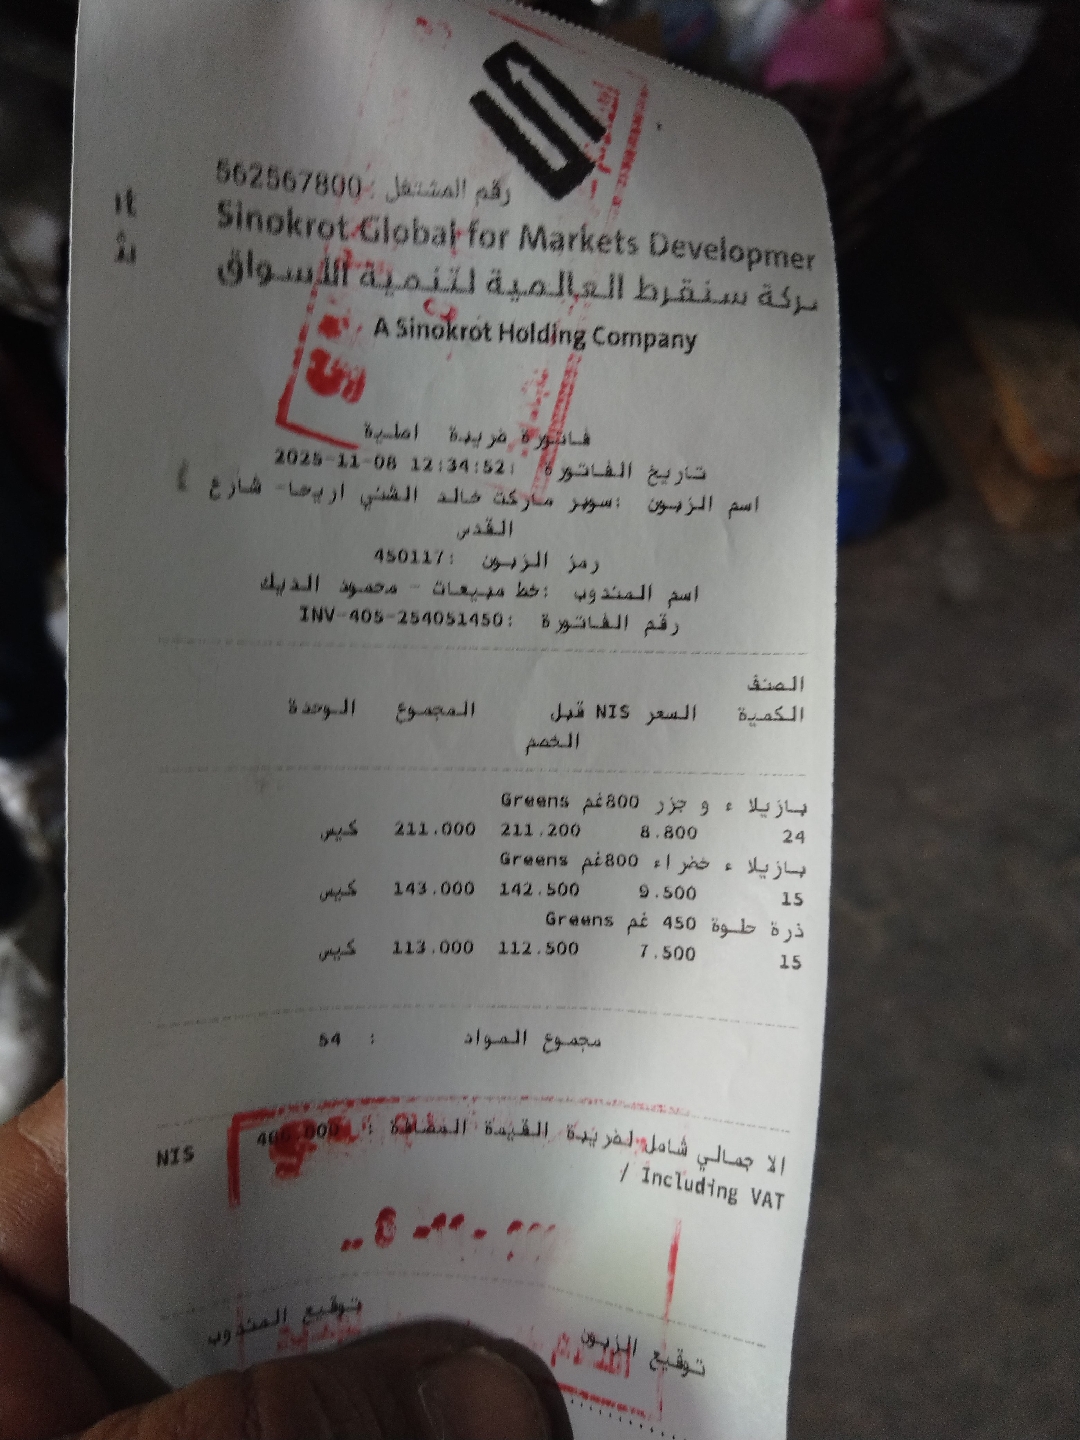 رقم المشتغل : 562567800
Sinokrot Global for Markets Developmer
ركة سنقرط العالمية لتنمية الأسواق
A Sinokrot Holding Company
فاتورة ضريبة اصلية
تاريخ الفاتورة :2025-11-08 12:34:52
اسم الزبون :سوبر ماركت خالد الشني اريحا- شارع
القدس
رمز الزبون :450117
اسم المندوب :خط مبيعات - محمود الديك
رقم الفاتورة :INV-405-254051450
الصنف
الكمية السعر NIS قبل المجموع الوحدة
الخصم
بازيلاء و جزر 800غم Greens
24 8.800 211.200 211.000 كيس
بازيلاء خضراء 800غم Greens
15 9.500 142.500 143.000 كيس
ذرة حلوة 450 غم Greens
15 7.500 112.500 113.000 كيس
مجموع المواد : 54
الاجمالي شامل لضريبة القيمة المضافة : NIS
/ Including VAT
توقيع الزبون توقيع المندوب